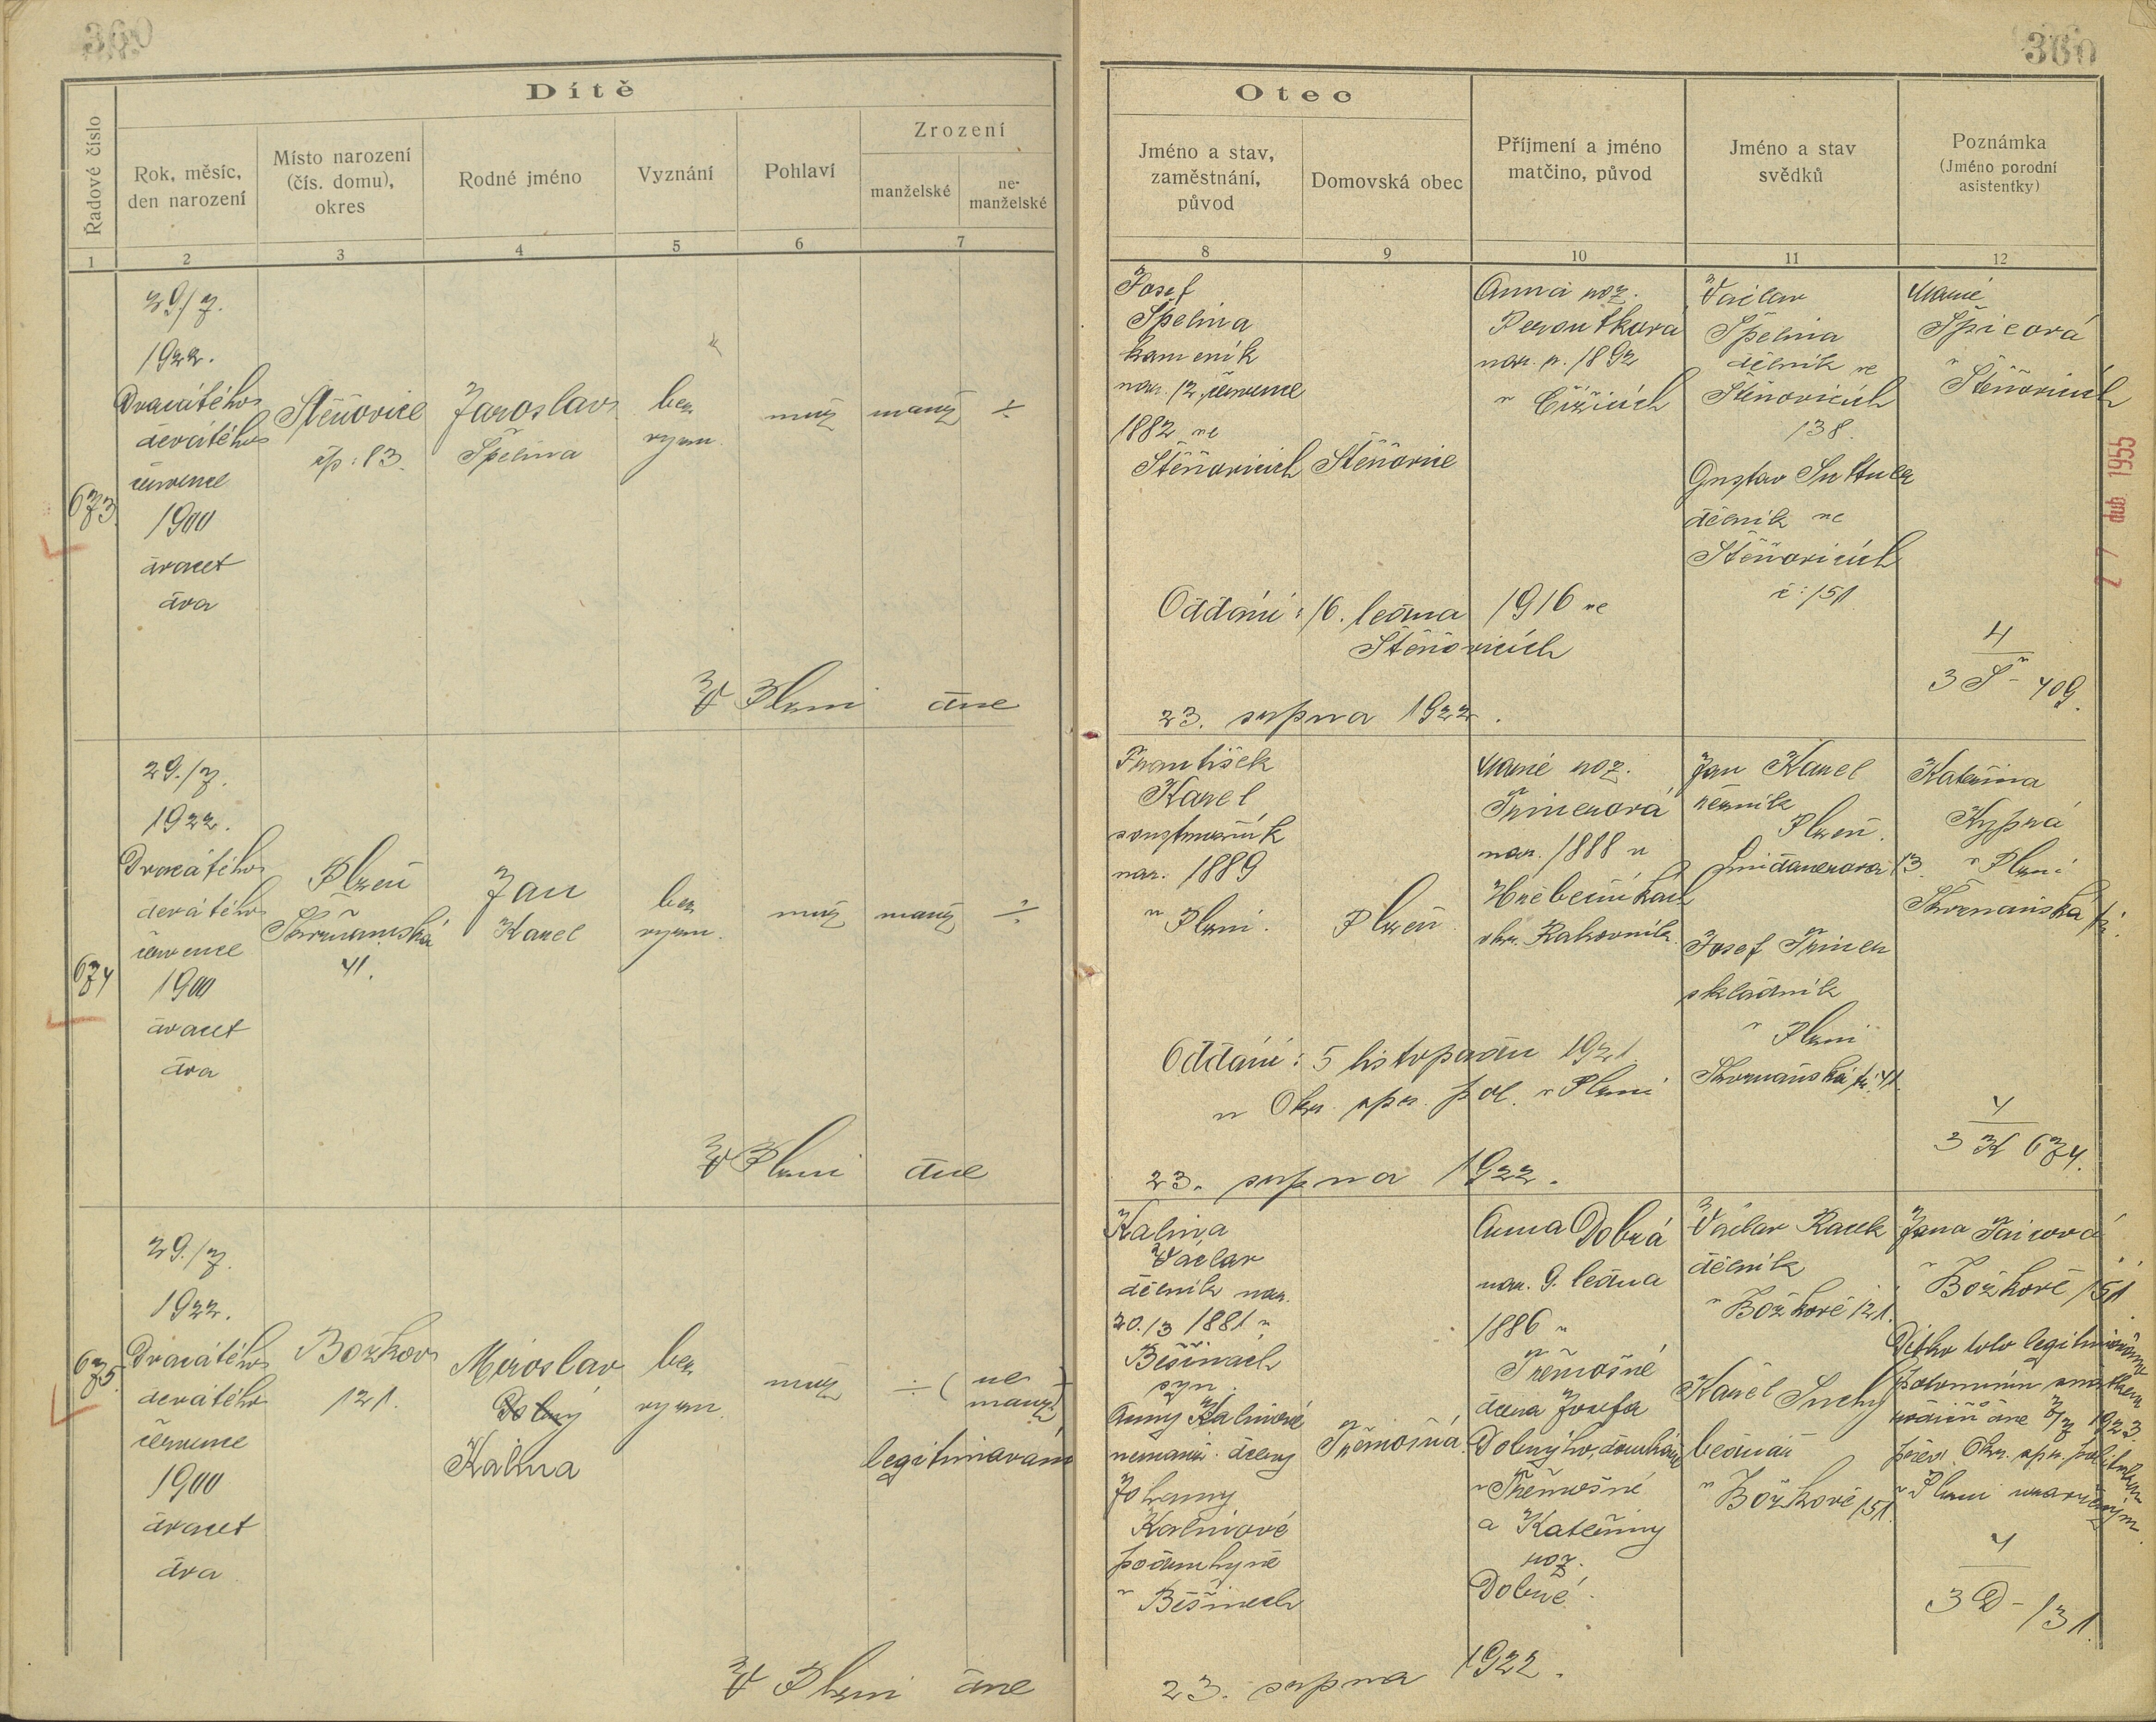 360
Dítě
Řadové číslo
Rok, měsíc,
den narození
Místo narození
(čís. domu),
okres
Rodné jméno
Vyznání
Pohlaví
Zrození
manželské
ne-
manželské
1
2
3
4
5
6
7
Otec
Jméno a stav,
zaměstnání,
původ
Domovská obec
Příjmení a jméno
matčino, původ
Jméno a stav
svědků
Poznámka
(Jméno porodní
asistentky)
8
9
10
11
12
673
29/7.
1922.
Dvacátého
devátého
července
1900
dvacet
dva
Štěnovice
čp: 83.
Jaroslav
Špelina
bez
vyzn.
muž
manž
÷
Josef
Špelina
kameník
nar. 12. července
1882 ve
Štěňovicích
Štěňovice
Anna roz.
Peroutková
nar. r. 1892
v Čižicích
Václav
Špelina
dělník ve
Štěňovicích
138.
Gustav
dělník ve
Štěňovicích
č: 151
Marie
Špicová
v
Štěňovicích
Oddáni: 16. ledna 1916 ve
Štěňovicích
4
3 Š - 409.
V Plzni dne
23. srpna 1922.
27 dub. 1955
674
29./7.
1922.
Dvacátého
devátého
července
1900
dvacet
dva
Plzeň
Skvrňanská
41.
Jan
Karel
bez
vyzn.
muž
manž
÷
František
Karel
soustružník
nar. 1889
v Plzni.
Plzeň
Marie roz.
Trinerová
nar. 1888 v
Hřebečníkách
okr. Rakovník.
Jan Karel
řezník
Plzeň.
13.
Josef Triner
skladník
v Plzni
Skvrňanská tř. 41.
Kateřina
Kyprá
v Plzni
Skvrňanská tř.
Oddáni: 5 listopadu 1921
u Okr. spr. pol. v Plzni
4
3 K 674.
V Plzni dne
23. srpna 1922.
675.
29./7.
1922.
Dvacátého
devátého
července
1900
dvacet
dva
Božkov
121.
Miroslav
Dobrý
Kalina
bez
vyzn.
muž
÷ (ne
manž)
legitimován
Kalina
Václav
dělník nar.
20./3 1881 v
Běšinách
syn
Anny Kalinové
nemanž. dcery
Johanny
Kalinové
podruhyně
v Běšinech
Třemošná.
Anna Dobrá
nar. 9. ledna
1886 v
Třemošné
dcera Josefa
Dobrýho, domkáře
v Třemošné
a Kateřiny
roz.
Dobré.
Václav Racek
dělník
v Božkově 121.
Karel Suchý
bednář
v Božkově 151.
Jana
v Božkově 151.
Dítko toto legitimováno
potomním sňatkem
rodičů dne 7/7 1923.
před Okr. spr. politickou
v Plzni uzavřeným.
4
3 D - 131.
V Plzni dne
23. srpna 1922.